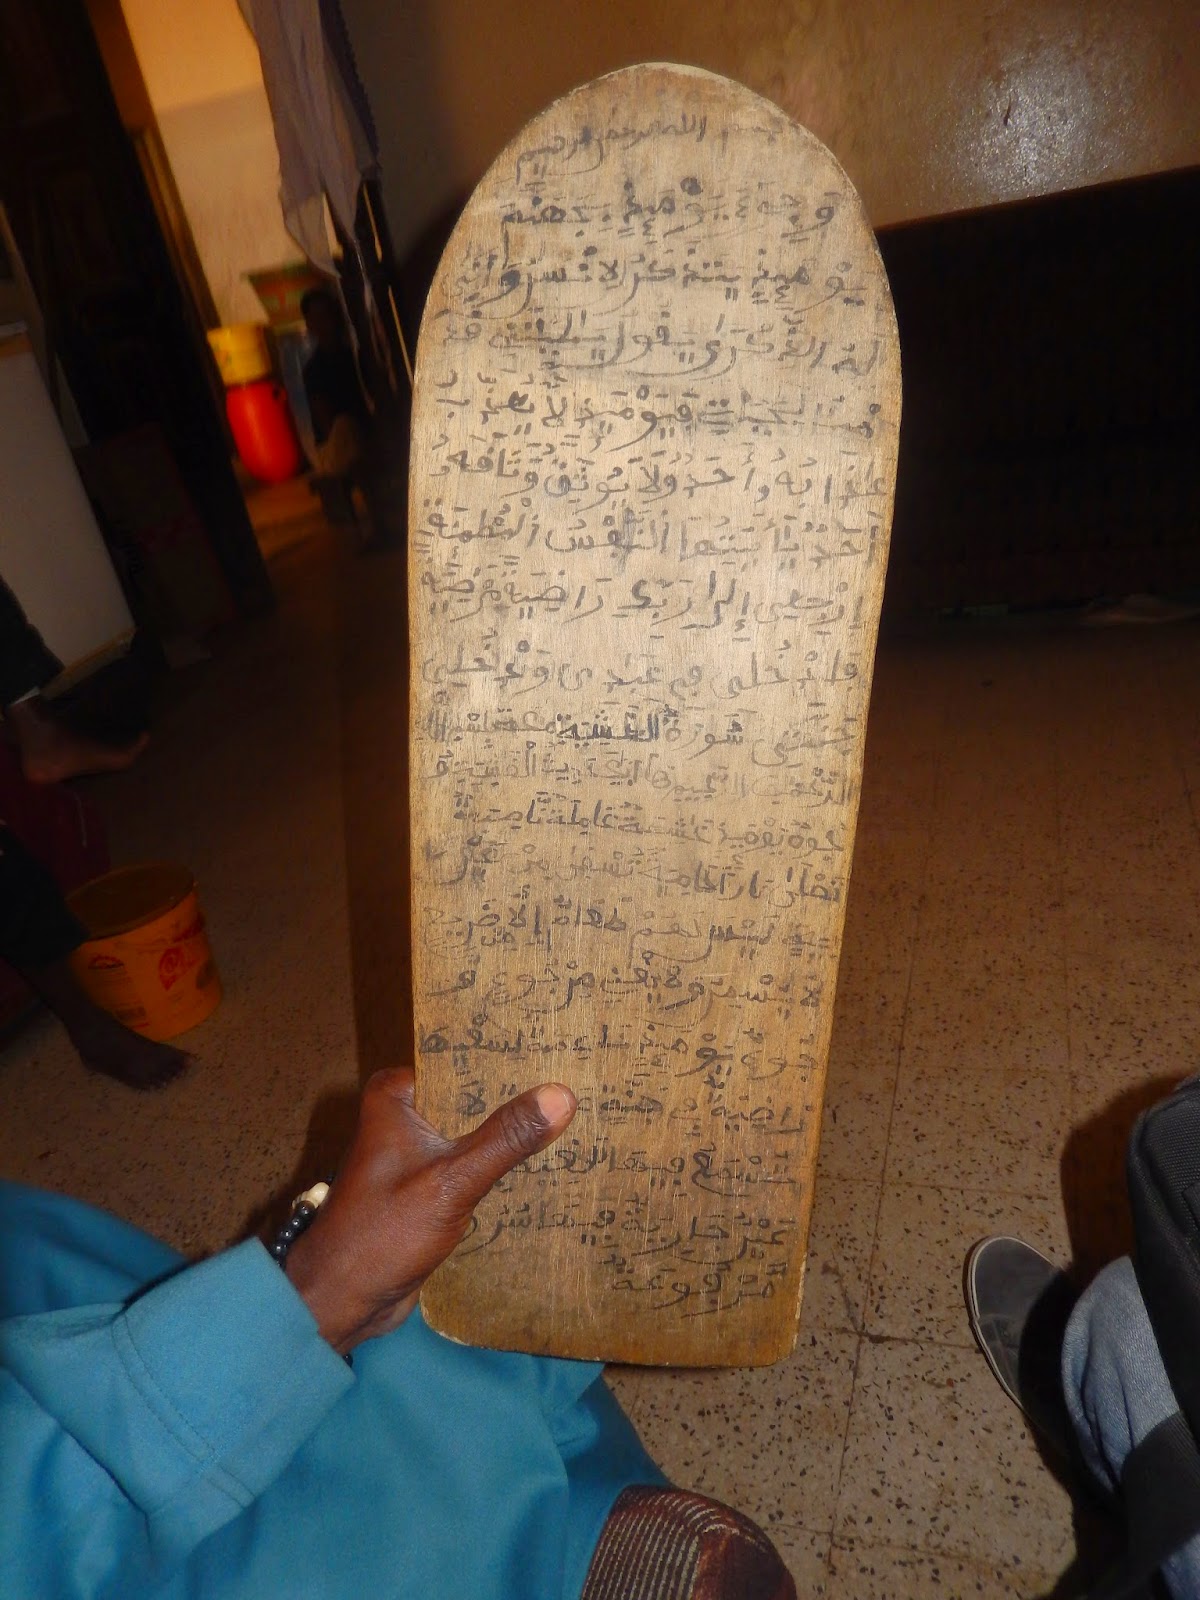 بسم الله الرحمن الرحيم
وَجِےءَ يَوْمَيِٕذِۢ بِجَهَنَّمَ
يَوْمَيِٕذٍ يَتَذَكَّرُ الِانْسَٰنُ وَأَنّٜي
لَهُ الذِّكْرٜي يَقُولُ يَٰلَيْتَنِے قَدَّ
مْتُ لِحَيَاتِے فَيَوْمَيِٕذٍ لَّا يُعَذِّبُ
عَذَابَهُۥ أَحَدٌ وَلَا يُوثِقُ وَثَاقَهُۥ
أَحَدٌ يَٰأَيَّتُهَا اَلنَّفْسُ اُلْمُطْمَئِنَّةُ
اِرْجِعِي إِلَىٰ رَبِّكِ رَاضِيَةً مَّرْضِيَّةً
فَادْخُلِي فِي عِبَٰدِي وَادْخُلِي
جَنَّتِي سُورَةُ الْغَٰشِيَةِ مكية
هل أتيك حديث الغشية و
جُوهٌ يَوْمَيِٕذٍ خَٰشِعَةٌ عَامِلَةٌ نَّاصِبَةٌ
تَصْلَىٰ نَارًا حَامِيَةً تُسْقَىٰ مِنْ عَيْنٍ ا
نِيَةٍ لَّيْسَ لَهُمْ طَعَامٌ إِلَّا مِن ضَرِيعٍ
لَّا يُسْمِنُ وَلَا يُغْنِي مِن جُوعٍ وُ
جُوهٌ يَوْمَيِٕذٍ نَّاعِمَةٌ لِّسَعْيِهَا
رَاضِيَةٌ فِي جَنَّةٍ لَّا
تَسْمَعُ فِيهَا لَٰغِيَةً
عَيْنٌ جَارِيَةٌ فِيهَا سُرُرٌ
مَّرْفُوعَةٌ